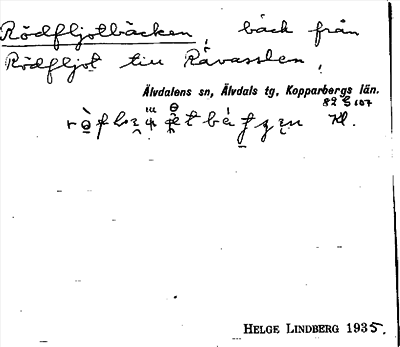 Rödfljotbäcken, bäck från
Rödfljot till Råvasslen.
Älvdalens sn, Älvdals tg, Kopparbergs län.
82 G 107
Kl.
HELGE LINDBERG 1935.